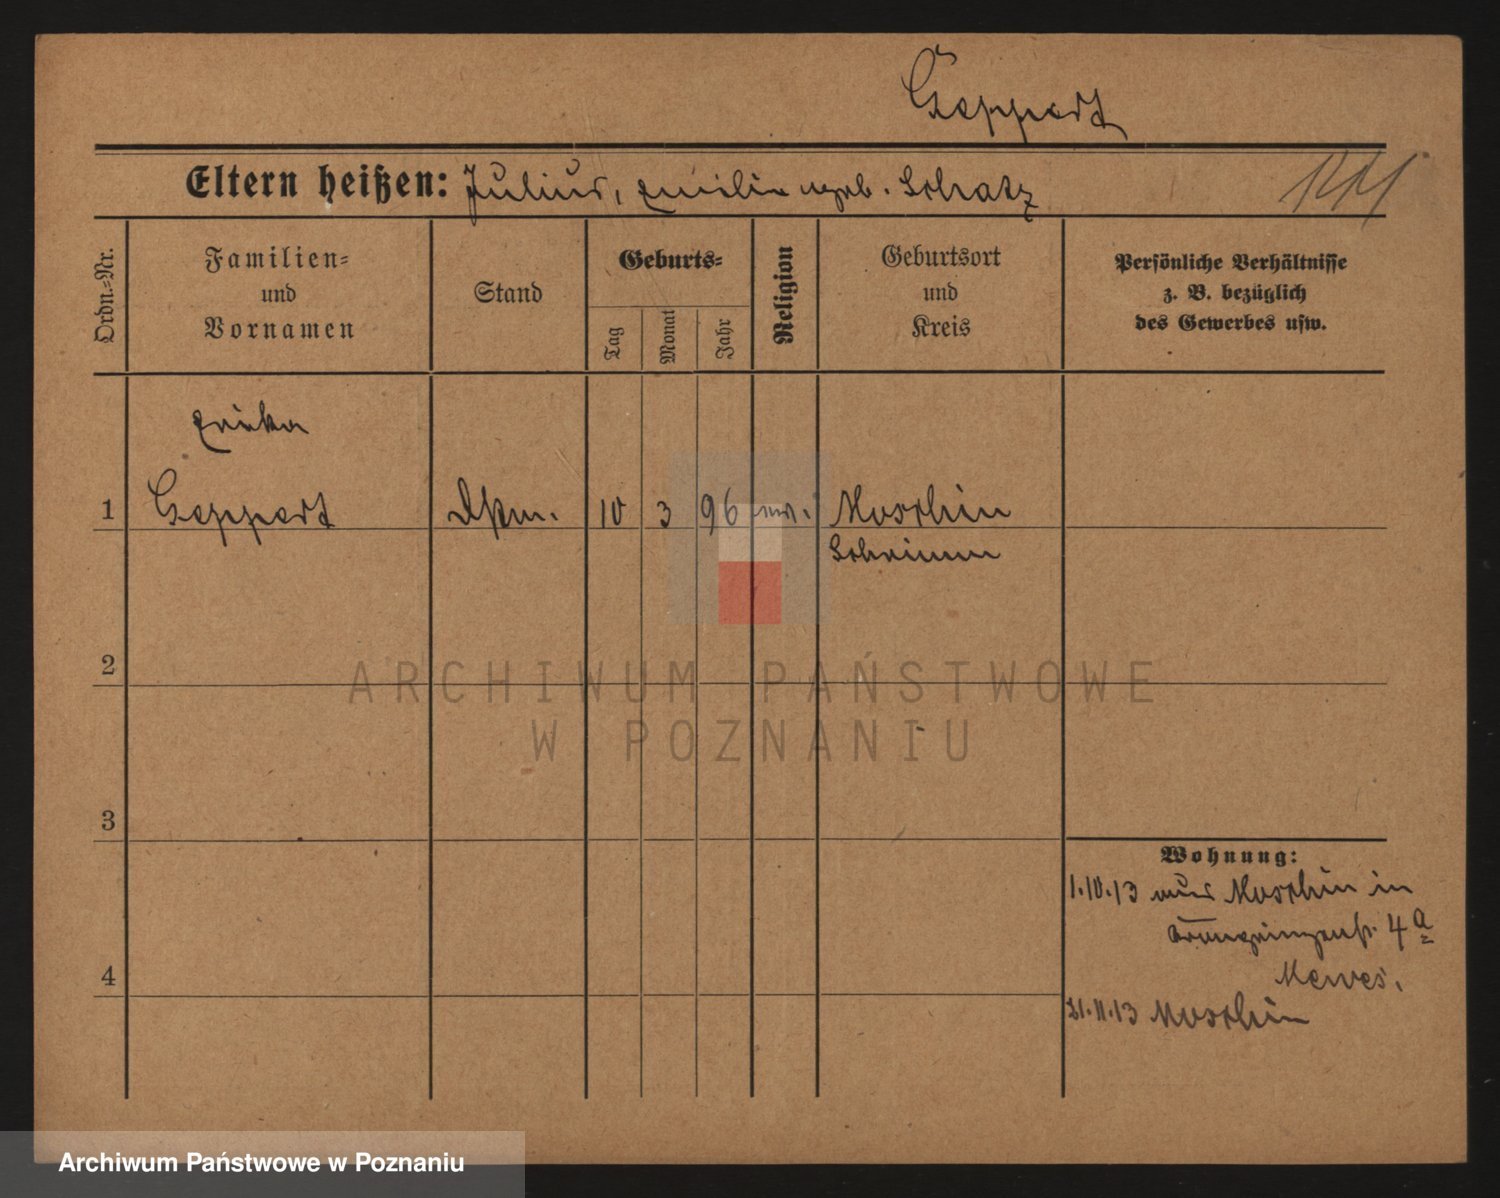 Geppert
Eltern heißen: Julius, Emilie geb. Schatz
Ordn.=Nr.
Familien=
und
Vornamen
Stand
Geburts=
Tag
Monat
Jahr
Religion
Geburtsort
und
Kreis
Persönliche Verhältnisse
z. B. bezüglich
des Gewerbes usw.
Erika
1 Geppert 10 3 96 ev. Moschin
Schrimm
2
3
4
Wohnung:
1.10.13 aus Moschin in
Kronprinzenstr. 4a
Mewes.
21.11.13 Moschin
ARCHIWUM PAŃSTWOWE
W POZNANIU
Archiwum Państwowe w Poznaniu